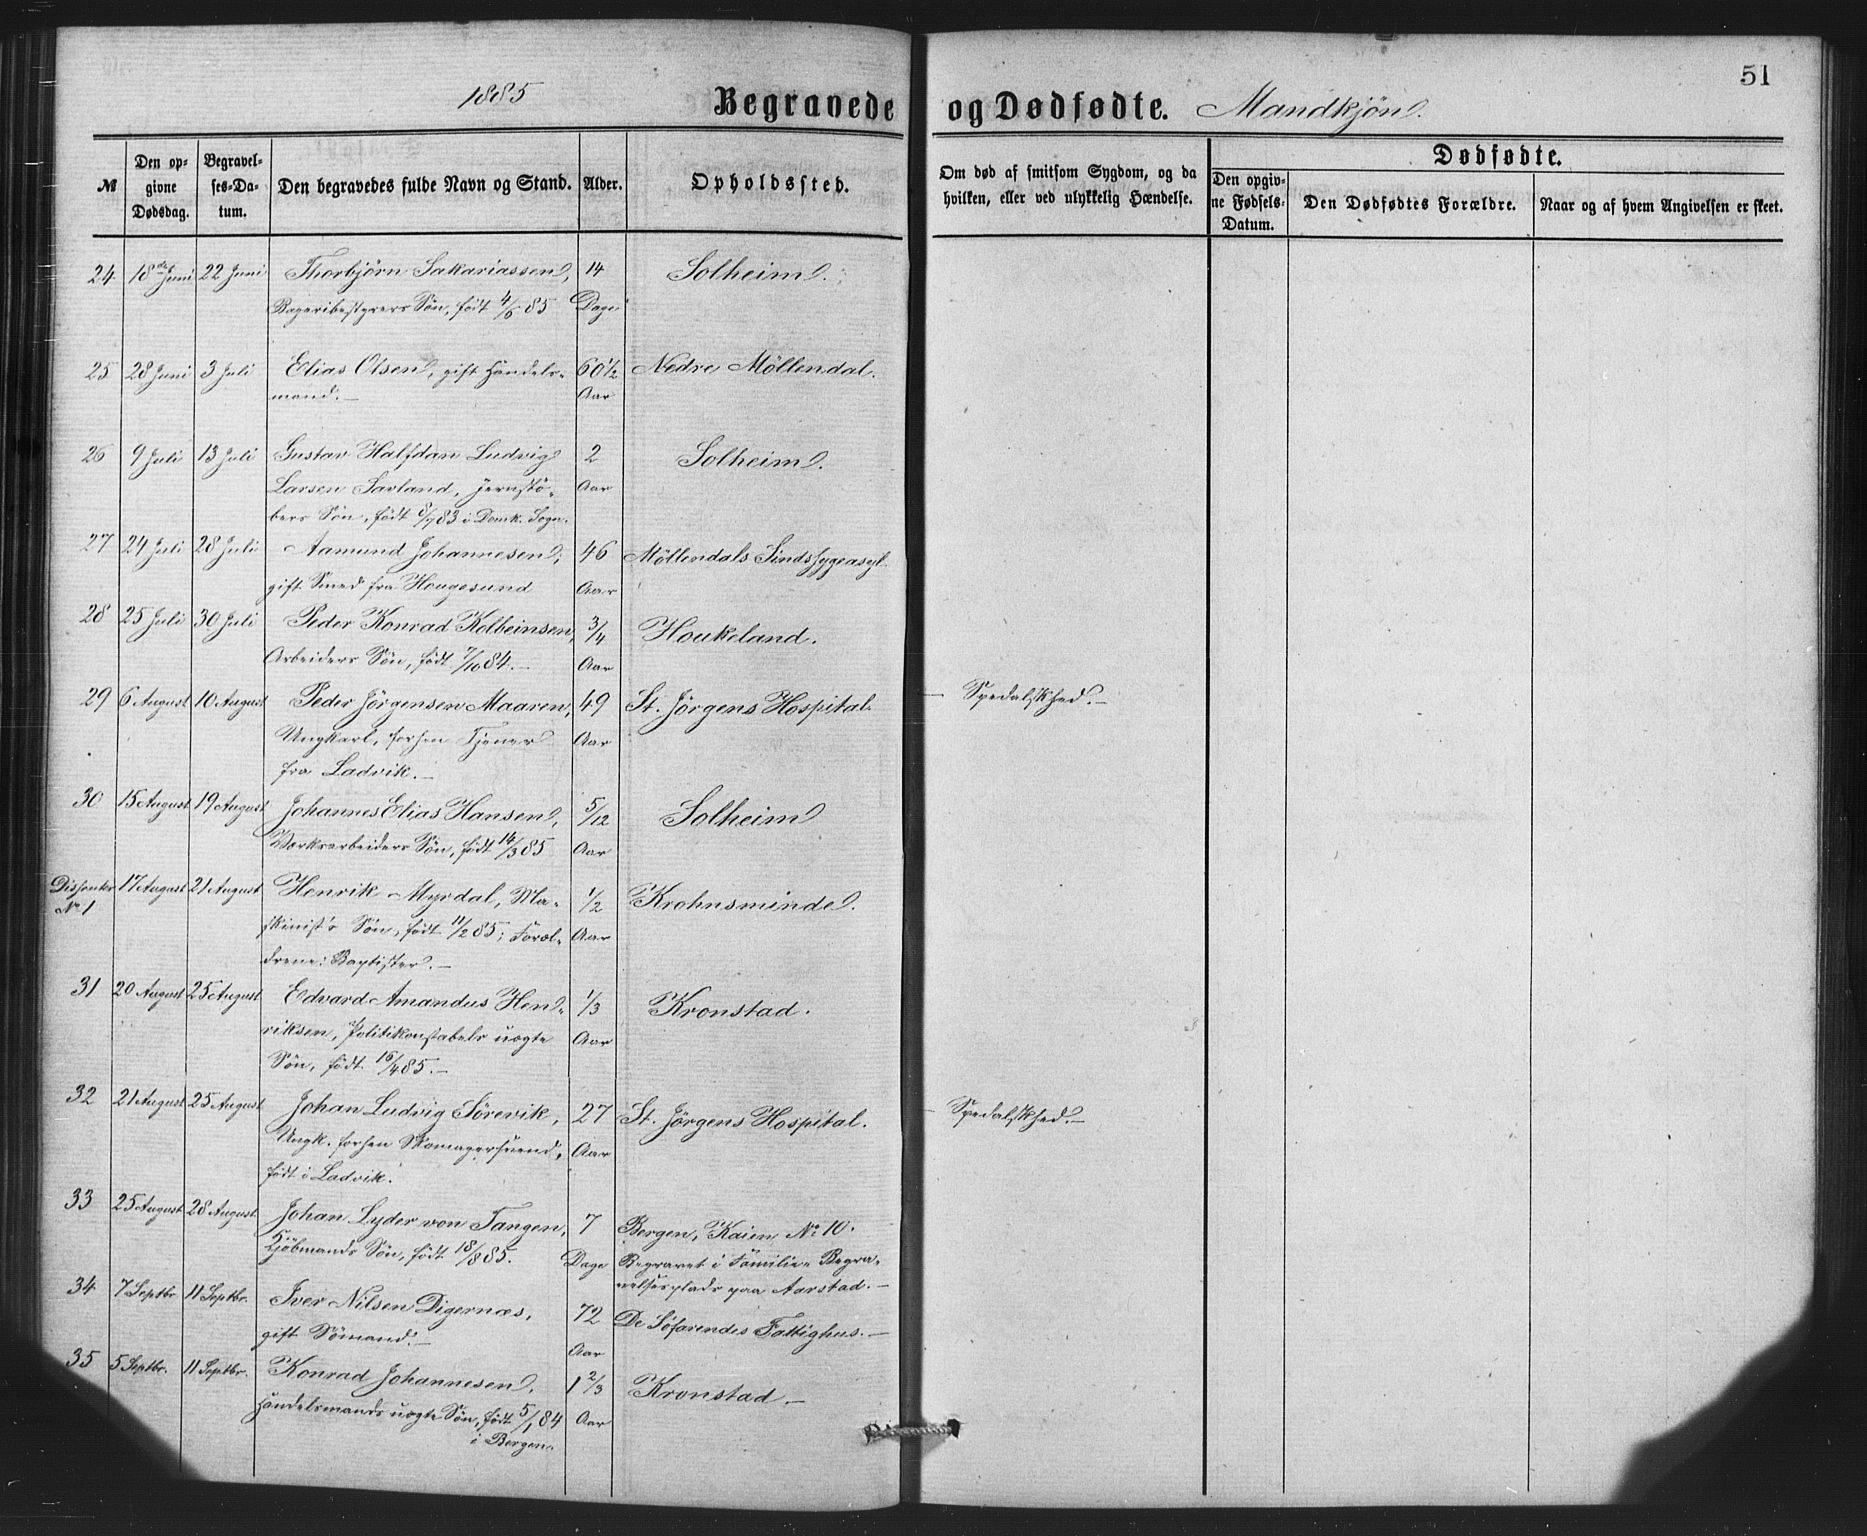 51
1885 Begravede og Dødfødte. Mandkjøn.
№
Den op-
givne
Dødsdag.
Begravel-
ses-Da-
tum.
Den begravedes fulde Navn og Stand.
Alder.
Opholdssted.
Om død af smitsom Sygdom, og da
hvilken, eller ved ulykkelig Hændelse.
Dødfødte.
Den opgiv-
ne Fødsels-
Datum.
Den Dødfødtes Forældre.
Naar og af hvem Angivelsen er skeet.
24 18de Juni 22 Juni Thorbjörn Sakariassen, 14 Solheim.
Bageribestyrers Søn, født 4/6 85 Dage
25 28 Juni 3 Juli Elias Olsen, gift Handels- 60 1/2 Nedre Möllendal.
mand. Aar
26 9 Juli 13 Juli Gustav Halfdan Ludvig 2 Solheim.
Larsen Aar
bers Søn, født 8/7 83 i Domk. Sogn.
27 24 Juli 28 Juli Aamund Johannesen, 46 Möllendals Sindssygeasyl.
gift Smed fra Hougesund Aar
28 25 Juli 30 Juli Peder Konrad Kolbeinsen, 3/4 Houkeland.
Arbeiders Søn, født 7/10 84. Aar
29 6 August 10 August Peder Jörgensen Maaren, 49 St. Jörgens Hospital. Spedalskhed.
Ungkarl, forhen Tjener Aar
fra Ladvik.
30 15 August 19 August Johannes Elias Hansen, 5/12 Solheim
Værksarbeiders Søn, født 14/3 85 Aar
Dissenter 17 August 21 August Henrik Myrdal, Ma- 1/2 Krohnsminde.
№ 1
skinist's Søn, født 11/2 85; Foræl- Aar
drene: Baptister.
31 20 August 25 August Edvard Amandus Hen- 1/3 Kronstad.
riksen, Politikonstabels uægte Aar
Søn, født 16/4 85.
32 21 August 25 August Johan Ludvig Sörevik, 27 St. Jörgens Hospital. Spedalskhed.
Ungk. forhen Skomagersvend, Aar
født i Ladvik.
33 25 August 28 August Johan Lyder von Tangen, 7 Bergen, Kaien № 10.
Kjöbmands Søn, født 18/8 85. Dage Begravet i Familie-Begra-
velsesplads paa Aarstad.
34 7 Septbr. 11 Septbr. Iver Nilsen Digernæs, 72 De Söfarendes Fattighus.
gift Sömand. Aar
35 5 Septbr. 11 Septbr. Konrad Johannesen, 1 2/3 Kronstad
Handelsmands uægte Søn, født 5/1 84 Aar
i Bergen.